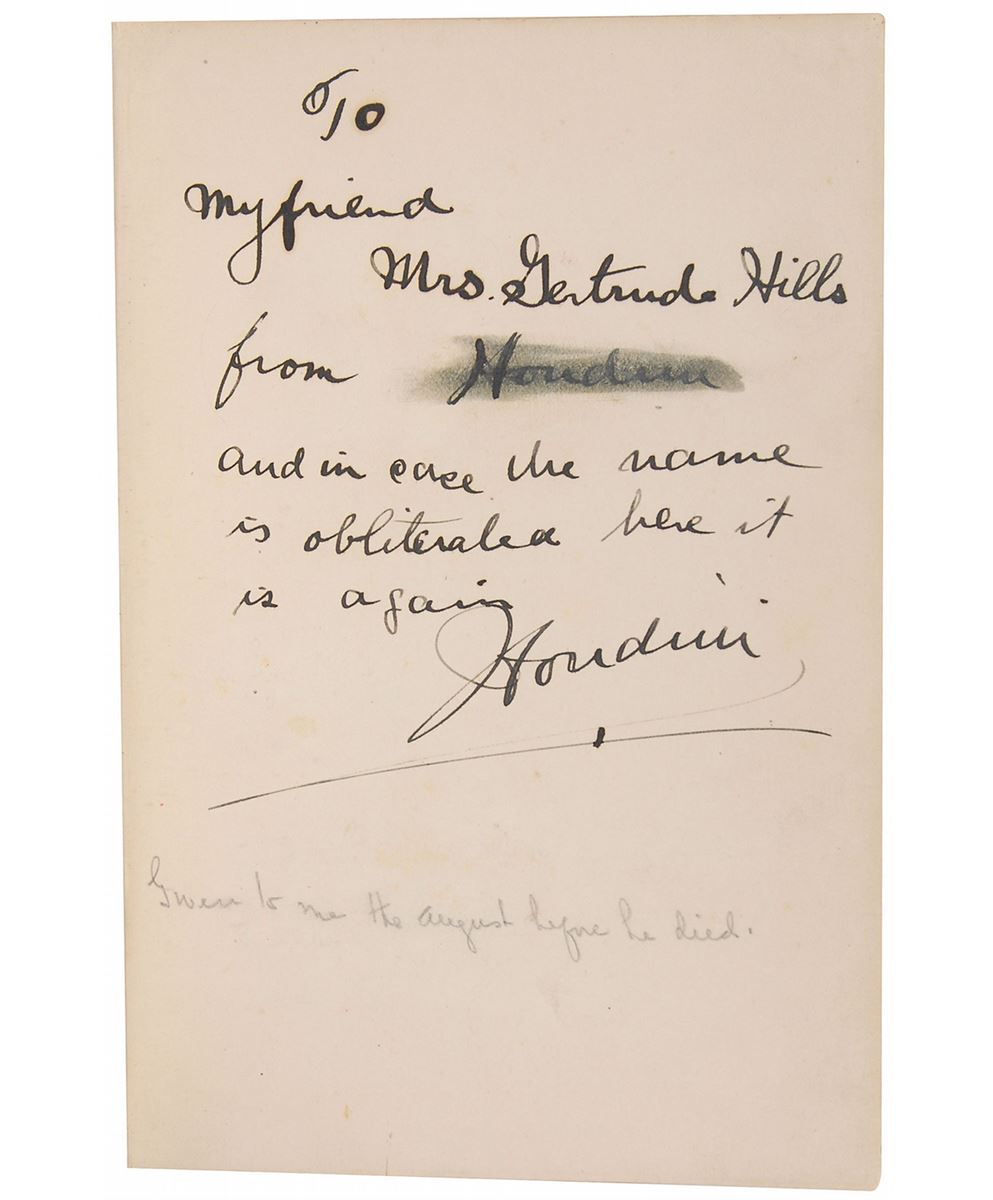 To
My friend
Mrs. Gertrude Hills
from Houdini
and in case the name
is obliterated here it
is again
Houdini
Given to me the August before he died.